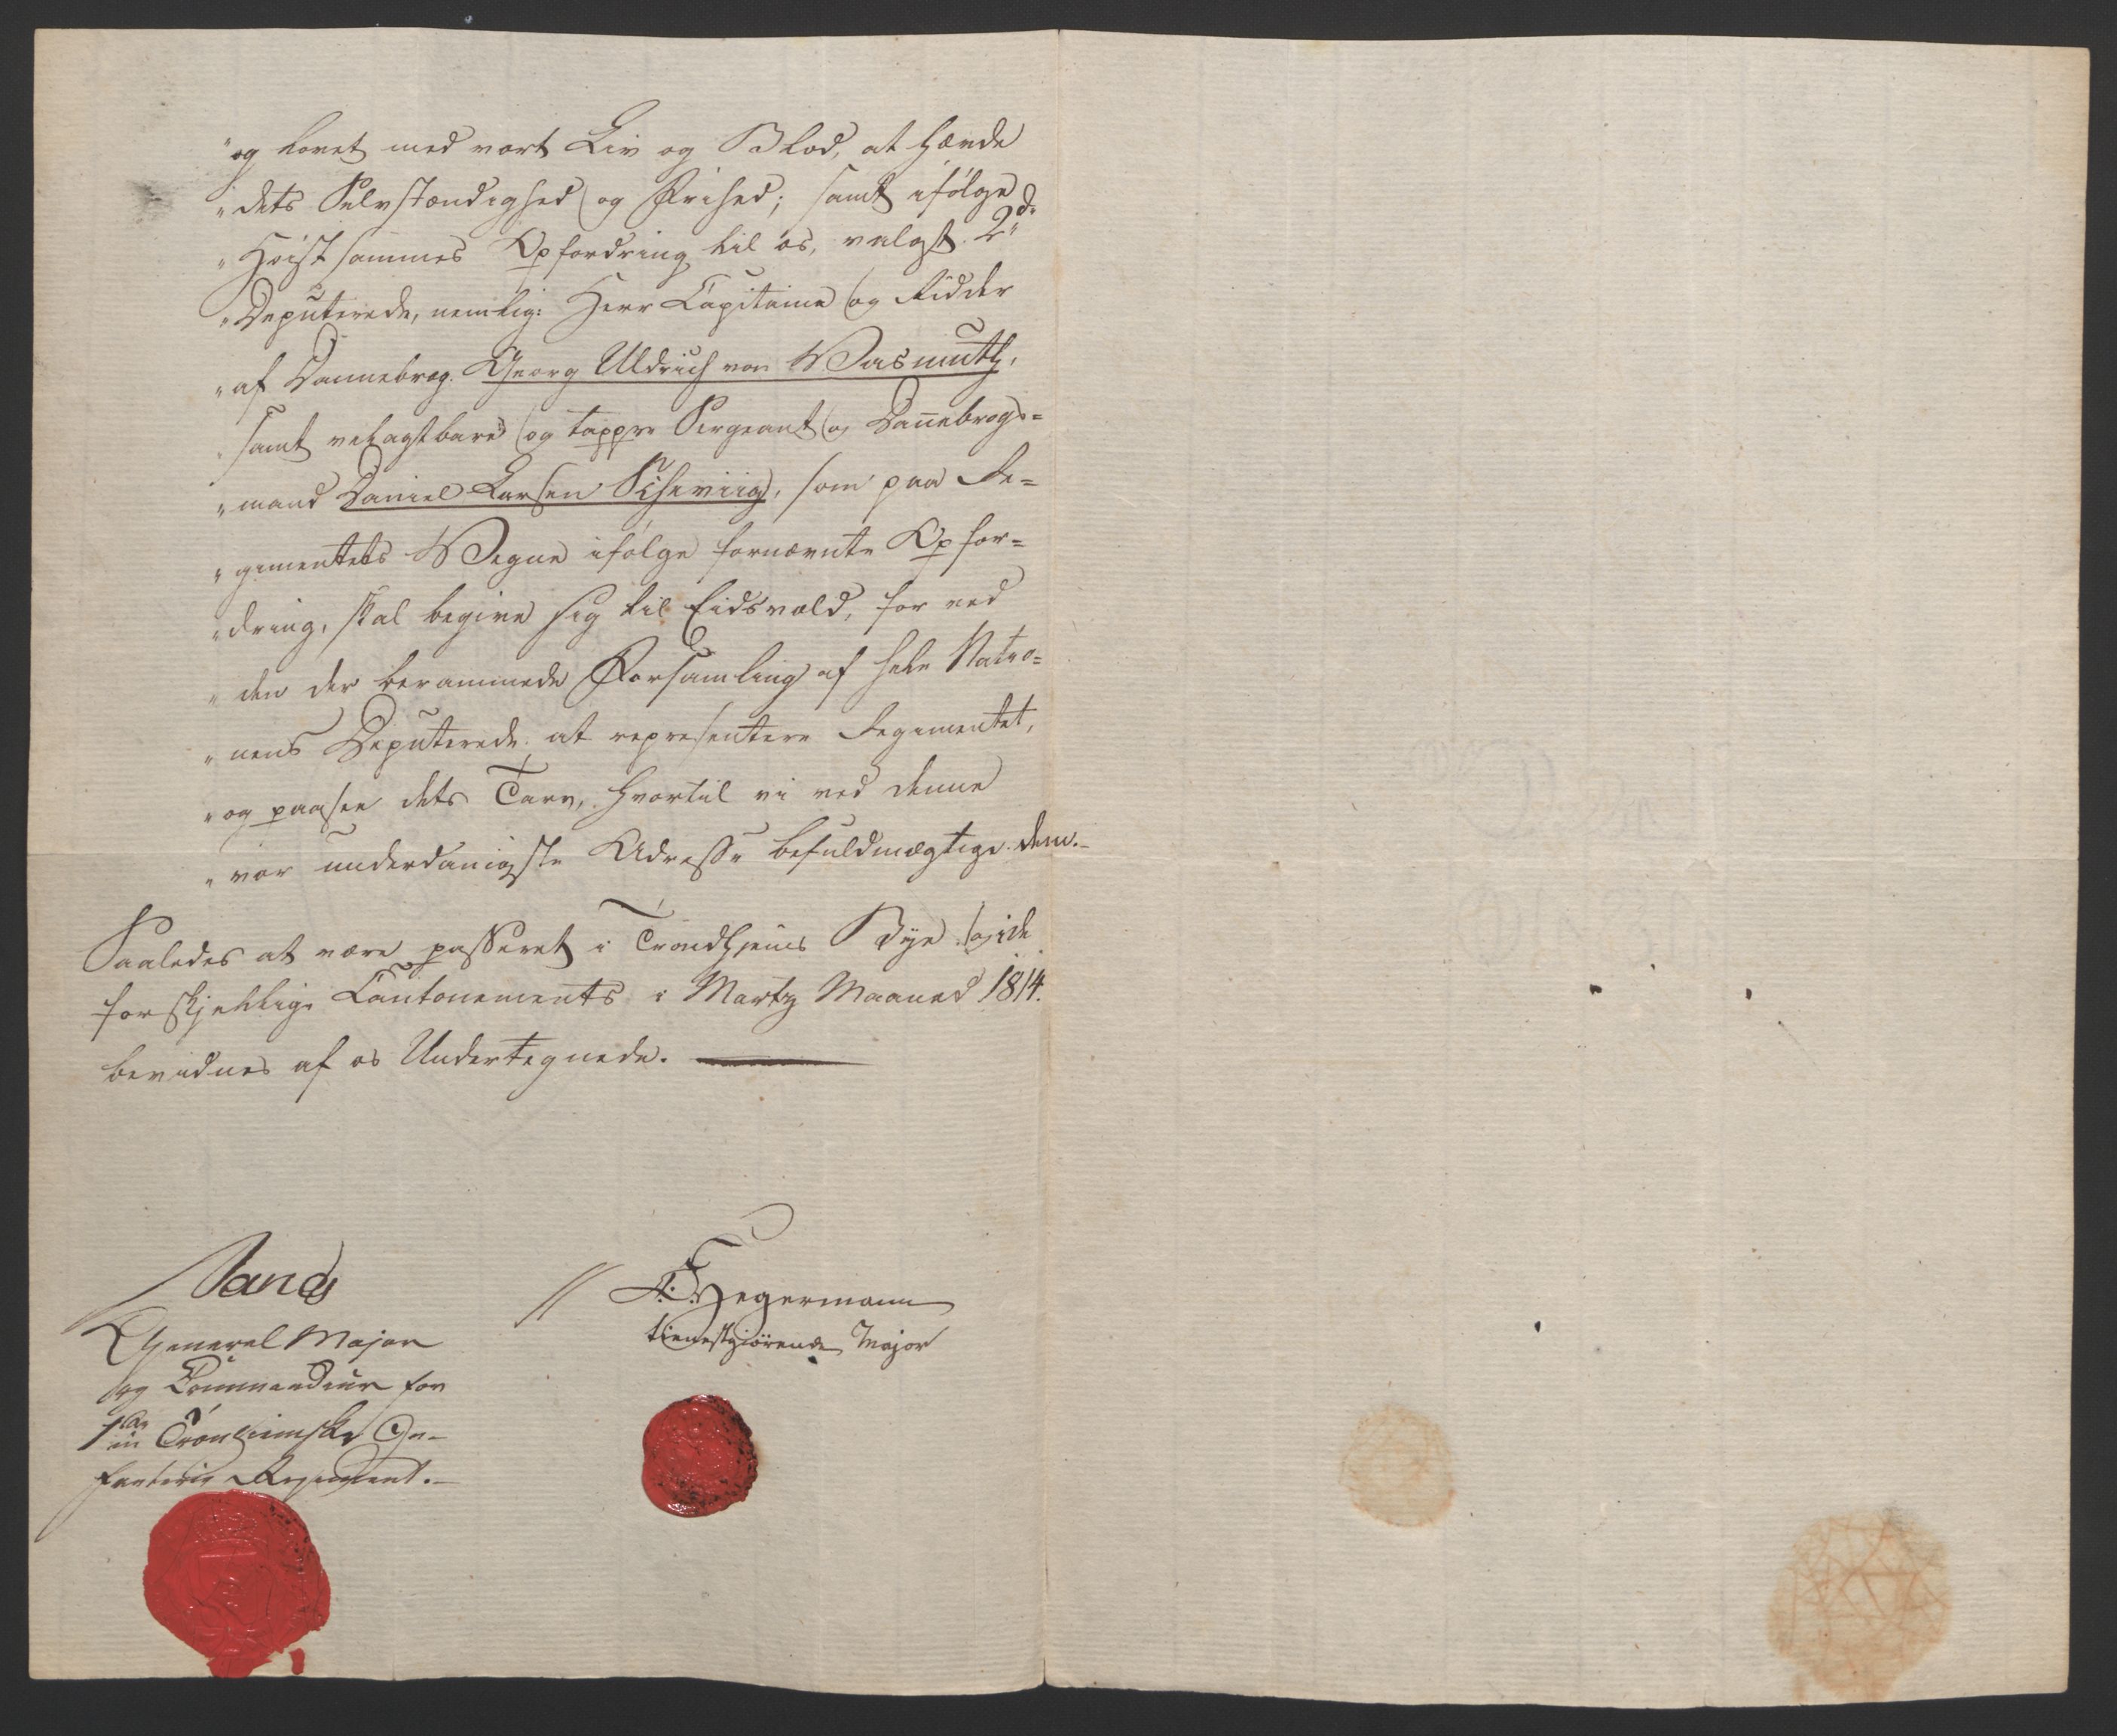 "og lovet med vort Liv og Blod, at hævde
"dets Selvstændighed og Frihed; samt ifølge
"Høistsammes Opfordring til os, valgt 2de
"Deputerede, nemlig: Herr Capitaine og Ridder
"af Dannebrog. Georg Uldrich von Wasmuth,
"samt velagtbare og tappre Sergeant og Dan̄ebrogs=
"mand Daniel Larsen Scheviig, som paa Re=
"gimentets Vegne ifølge fornævnte Opfor=
"dring, skal begive sig til Eidsvold, for ved
"den der berammede Forsamling af hele Natio=
"nens Deputerede at repræsentere Regimentet,
"og paasee dets Tarv, hvortil vi ved denne
"vor underdanigste Adresse befuldmægtige dem.-
Saaledes at være passeret i Trondhjems Bye og i de
forskjellige Cantonements i Martz Maaned 1814.
bevidnes af os Undertegnede.
General Major
og Commandeur for
1ste Tronhiemske In-
fanterie Regiment.-
Hegermann
tienestgiörende Major